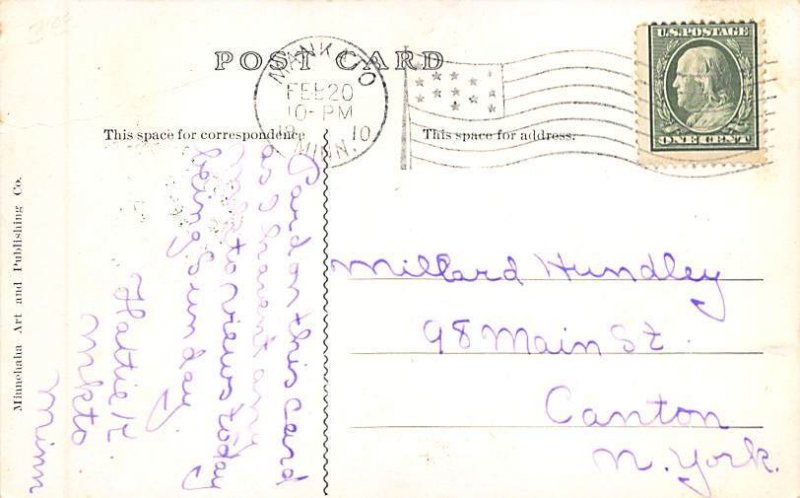 POST CARD
MANKATO
FEB 20
10-PM
10
MINN.
U.S. POSTAGE
ONE CENT
This space for correspondence
This space for address.
Card on this card
as I havent any
Mkto views today
being Sunday.
Hattie K.
Mkto.
Minn
Millard Hundley
98 Main St.
Canton
N. York.
Minnehaha Art and Publishing Co.